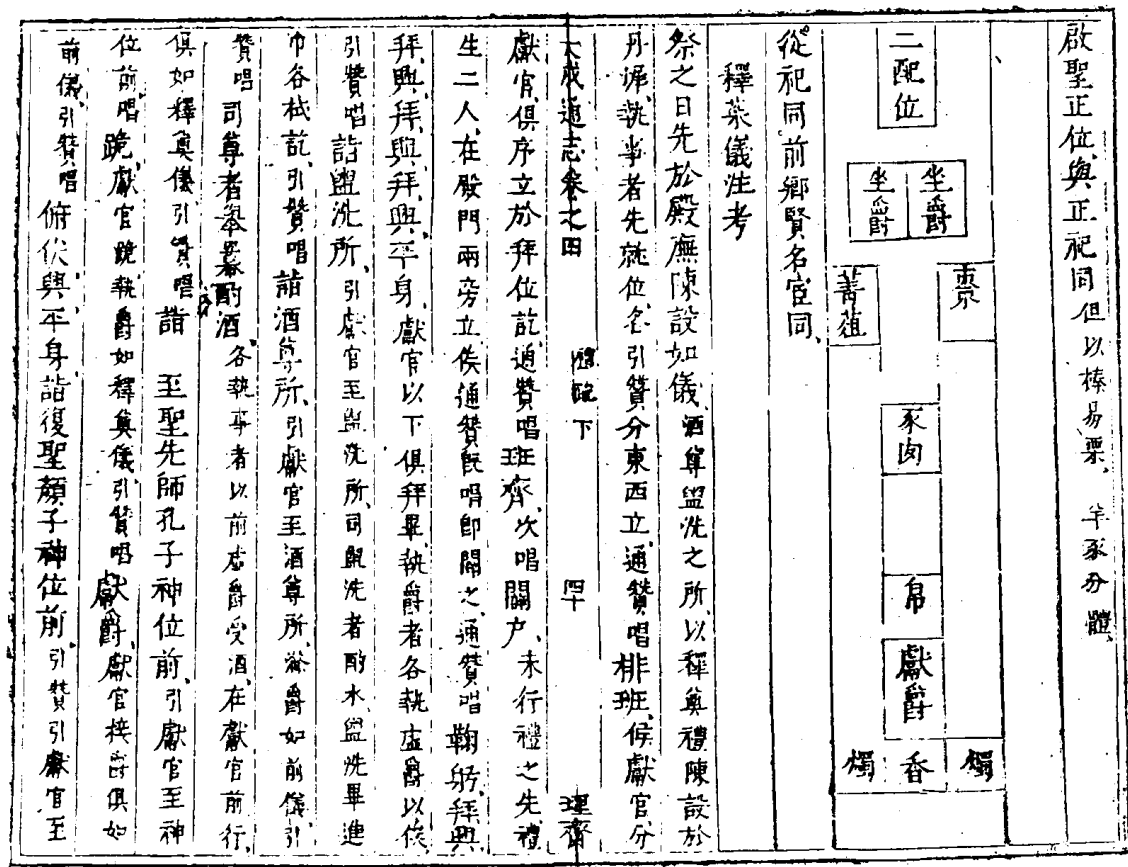 啟聖正位與正祀同但以棒易栗 羊豕分體
二配位
坐爵
坐爵
栗
菁菹
豕肉
帛
獻爵
燭
香
燭
從祀同前鄉賢名宦同
釋菜儀注考
祭之日先於殿廡陳設如儀酒尊盥洗之所以釋奠禮陳設於
丹墀執事者先就位各引贊分東西立通贊唱排班候獻官分
大成通志卷之四 下 四十 理齋
獻官俱序立於拜位訖通贊唱班齊次唱闢户未行禮之先禮
生二人在殿門兩旁立俟通贊既唱即闢之通贊唱鞠躬拜興
拜興拜興拜興平身獻官以下俱拜畢執爵者各執虛爵以俟
引贊唱詣盥洗所引獻官至盥洗所司盥洗者酌水盥洗畢進
巾各拭訖引贊唱詣酒尊所引獻官至酒尊所滌爵如前儀引
贊唱司尊者舉冪酌酒各執事者以前虛爵受酒在獻官前行
俱如釋奠儀引贊唱詣 至聖先師孔子神位前引獻官至神
位前唱跪獻官跪執爵如釋奠儀引贊唱獻爵獻官接爵俱如
前儀引贊唱俯伏興平身詣復聖顏子神位前引贊引獻官至